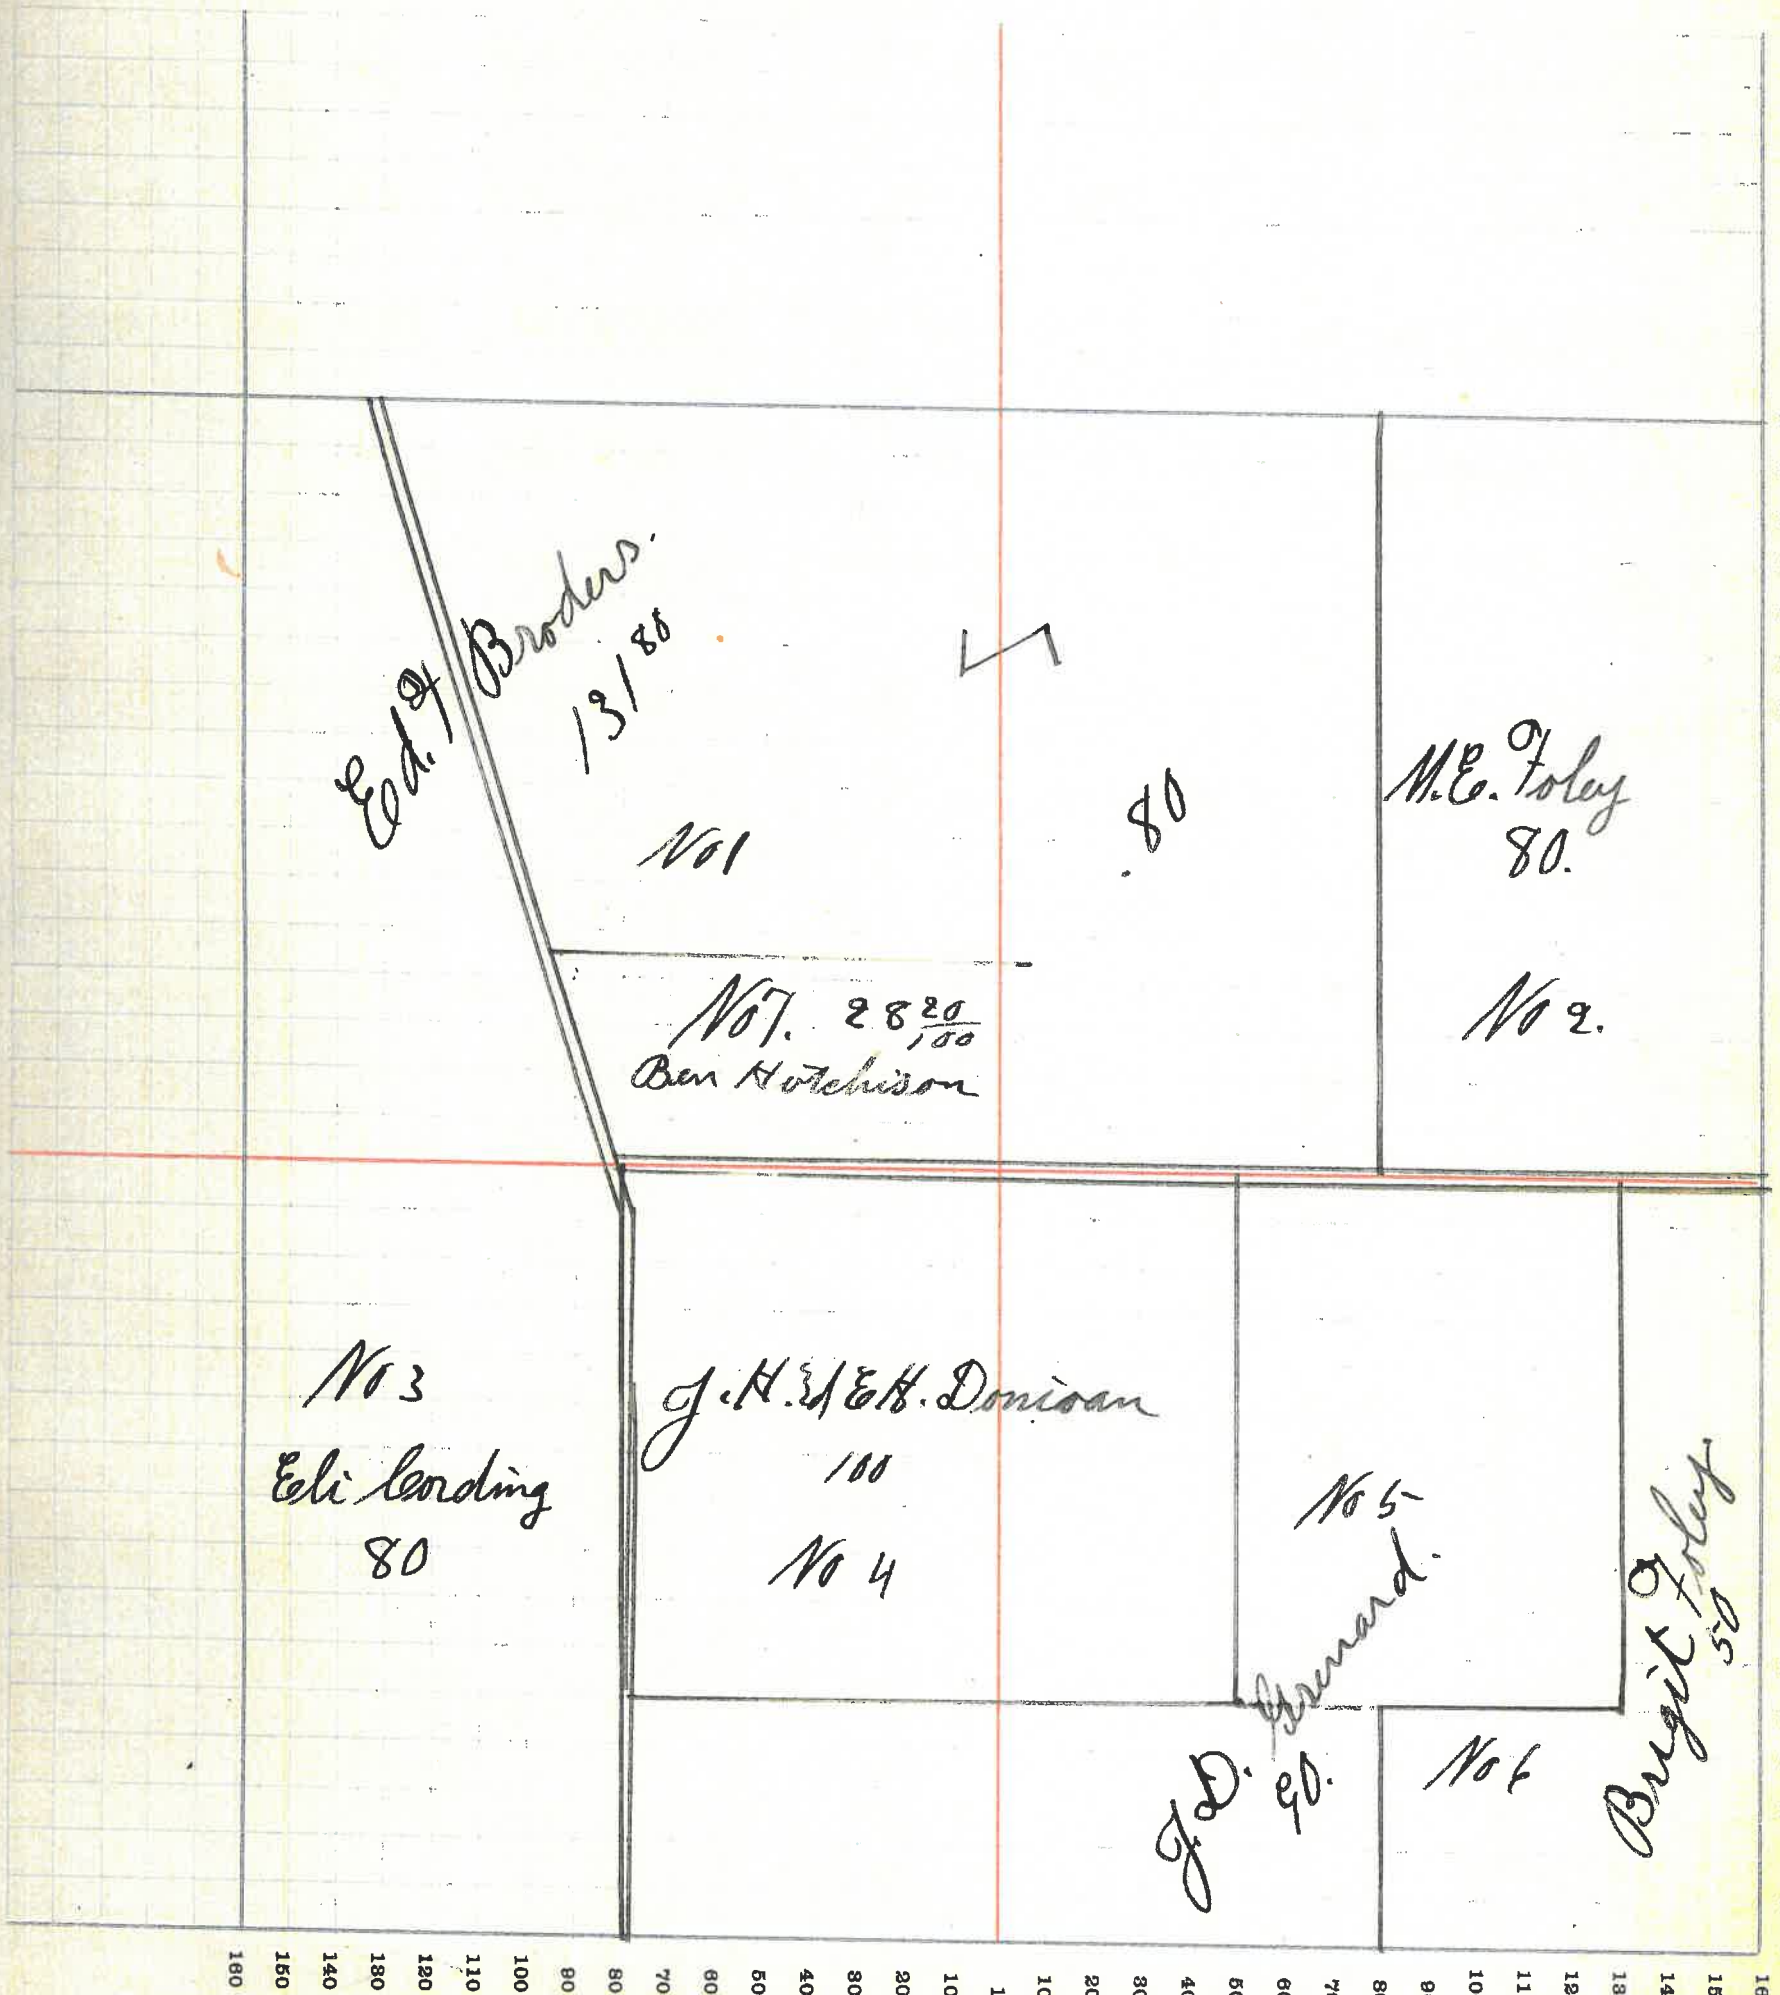 Ed. F Broders.
131 80
No 1
80
M.E. Foley
80.
No 2.
No 7. 28 20/100
Ben Hutchison
No 3
Eli Cording
80
J. H. & E H. Donivan
100
No 4
No 5
J. D. Grenard.
90.
No 6
Brigit Foley
50
160 150 140 130 120 110 100 90 80 70 60 50 40 30 20 10 1 10 20 30 40 50 60 70 80 9 10 11 12 13 14 15 16